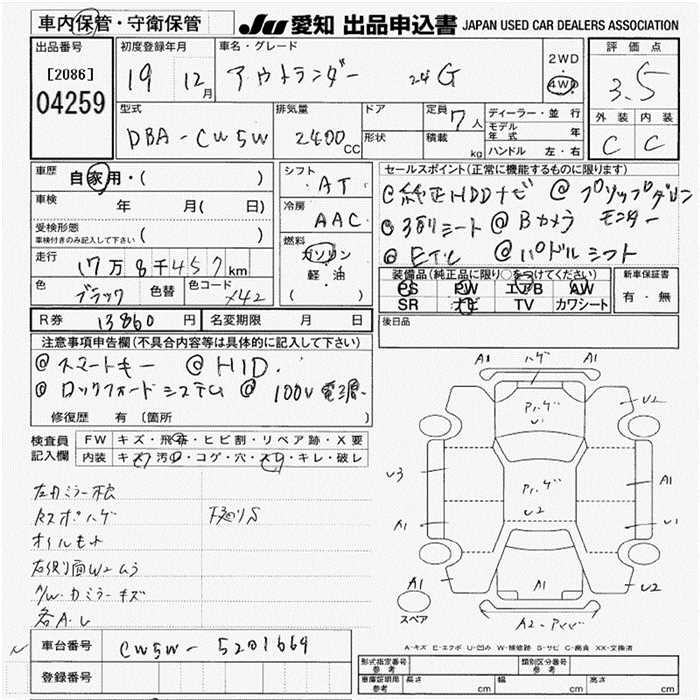 車内保管・守衛保管
JU 愛知 出品申込書 JAPAN USED CAR DEALERS ASSOCIATION
出品番号 初度登録年月 車名・グレード 評価点
[2086]
04259
19 12月 アウトランダー 24G 2WD 4WD 3.5
型式 排気量 ドア 定員 7人 ディーラー・並行 外装 内装
DBA-CW5W 2400CC 形状 積載 kg モデル年式 年 C C
ハンドル 左・右
車歴 自家用・( ) シフト AT セールスポイント(正常に機能するものに限ります)
@純正HDDナビ @フリップダウン
車検 年 月( 日) 冷房 AAC @3列シート @Bカメラ モニター
受検形態 車検付きのみ記入して下さい ( ) @ETC @パドルシフト
走行 17万8千457km 燃料 ガソリン 軽・油 ( )
装備品(純正品に限り○をつけてください) 新車保証書
PS PW エアB AW 有・無
SR ナビ TV カワシート
色 ブラック 色替 色コード X42
R券 13860円 名変期限 月 日 後日品
注意事項申告欄(不具合内容等は具体的に記入して下さい)
@スマートキー @HID.
@ロックフォードシステム @100V電源.
修復歴 有 〔箇所 〕
検査員記入欄 FW キズ・飛石・ヒビ割・リペア跡・X要
内装 キズ・汚れ・コゲ・穴・スレ・キレ・破レ
左カミラー
Rスポハゲ 下廻りS
オイルもよ
各A.U
A1 ハゲ A1
U2
Aハゲ
U1
U3
Aハゲ
U2
A1
A1
U1
A1
A1
U2
スペア
A2
A-キズ E-エクボ U-凹み W-補修跡 S-サビ C-腐食 XX-交換済
車台番号 CW5W-5201664
登録番号
形式指定番号 参考 類別区分番号 参考
車庫証明用 参考 長さ cm 幅 cm 高さ cm